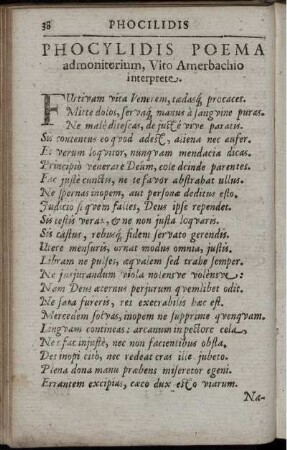 38 PHOCILIDIS
PHOCYLIDIS POEMA
admonitorium, Vito Amerbachio
interprete.
FUrtivam vita Venerem, tædasq́; procaces.
Mitte dolos, servaq́; manus à sanguine puras.
Ne malè ditescas, de justè vive paratis.
Sis contentus eo quod adest, aliena nec aufer.
Et verum loquitor, nunquam mendacia dicas.
Principiò venerare Deum, cole deinde parentes.
Fac justè cunctis, ne te favor abstrahat ullus.
Ne spernas inopem, aut personæ deditus esto.
Judicio si quem falles, Deus ipse rependet.
Sis testis verax, & ne non justa loquaris.
Sis castus, rebusq́; fidem servato gerendis.
Utere mensuris, ornat modus omnia, justis.
Libram ne pulses, æqualem sed trahe semper.
Ne jusjurandum viola nolensve volensve:
Nam Deus æternus perjurum quemlibet odit.
Ne sata fureris, res execrabilis hæc est.
Mercedem solvas, inopem ne supprime quenquam.
Linguam contineas: arcanum in pectore cela,
Nec fac injustè, nec non facientibus obsta.
Des inopi citò, nec redeat cras ille jubeto.
Plena dona manu præbens miseretor egeni.
Errantem excipias, cæco dux esto viarum.
Na-